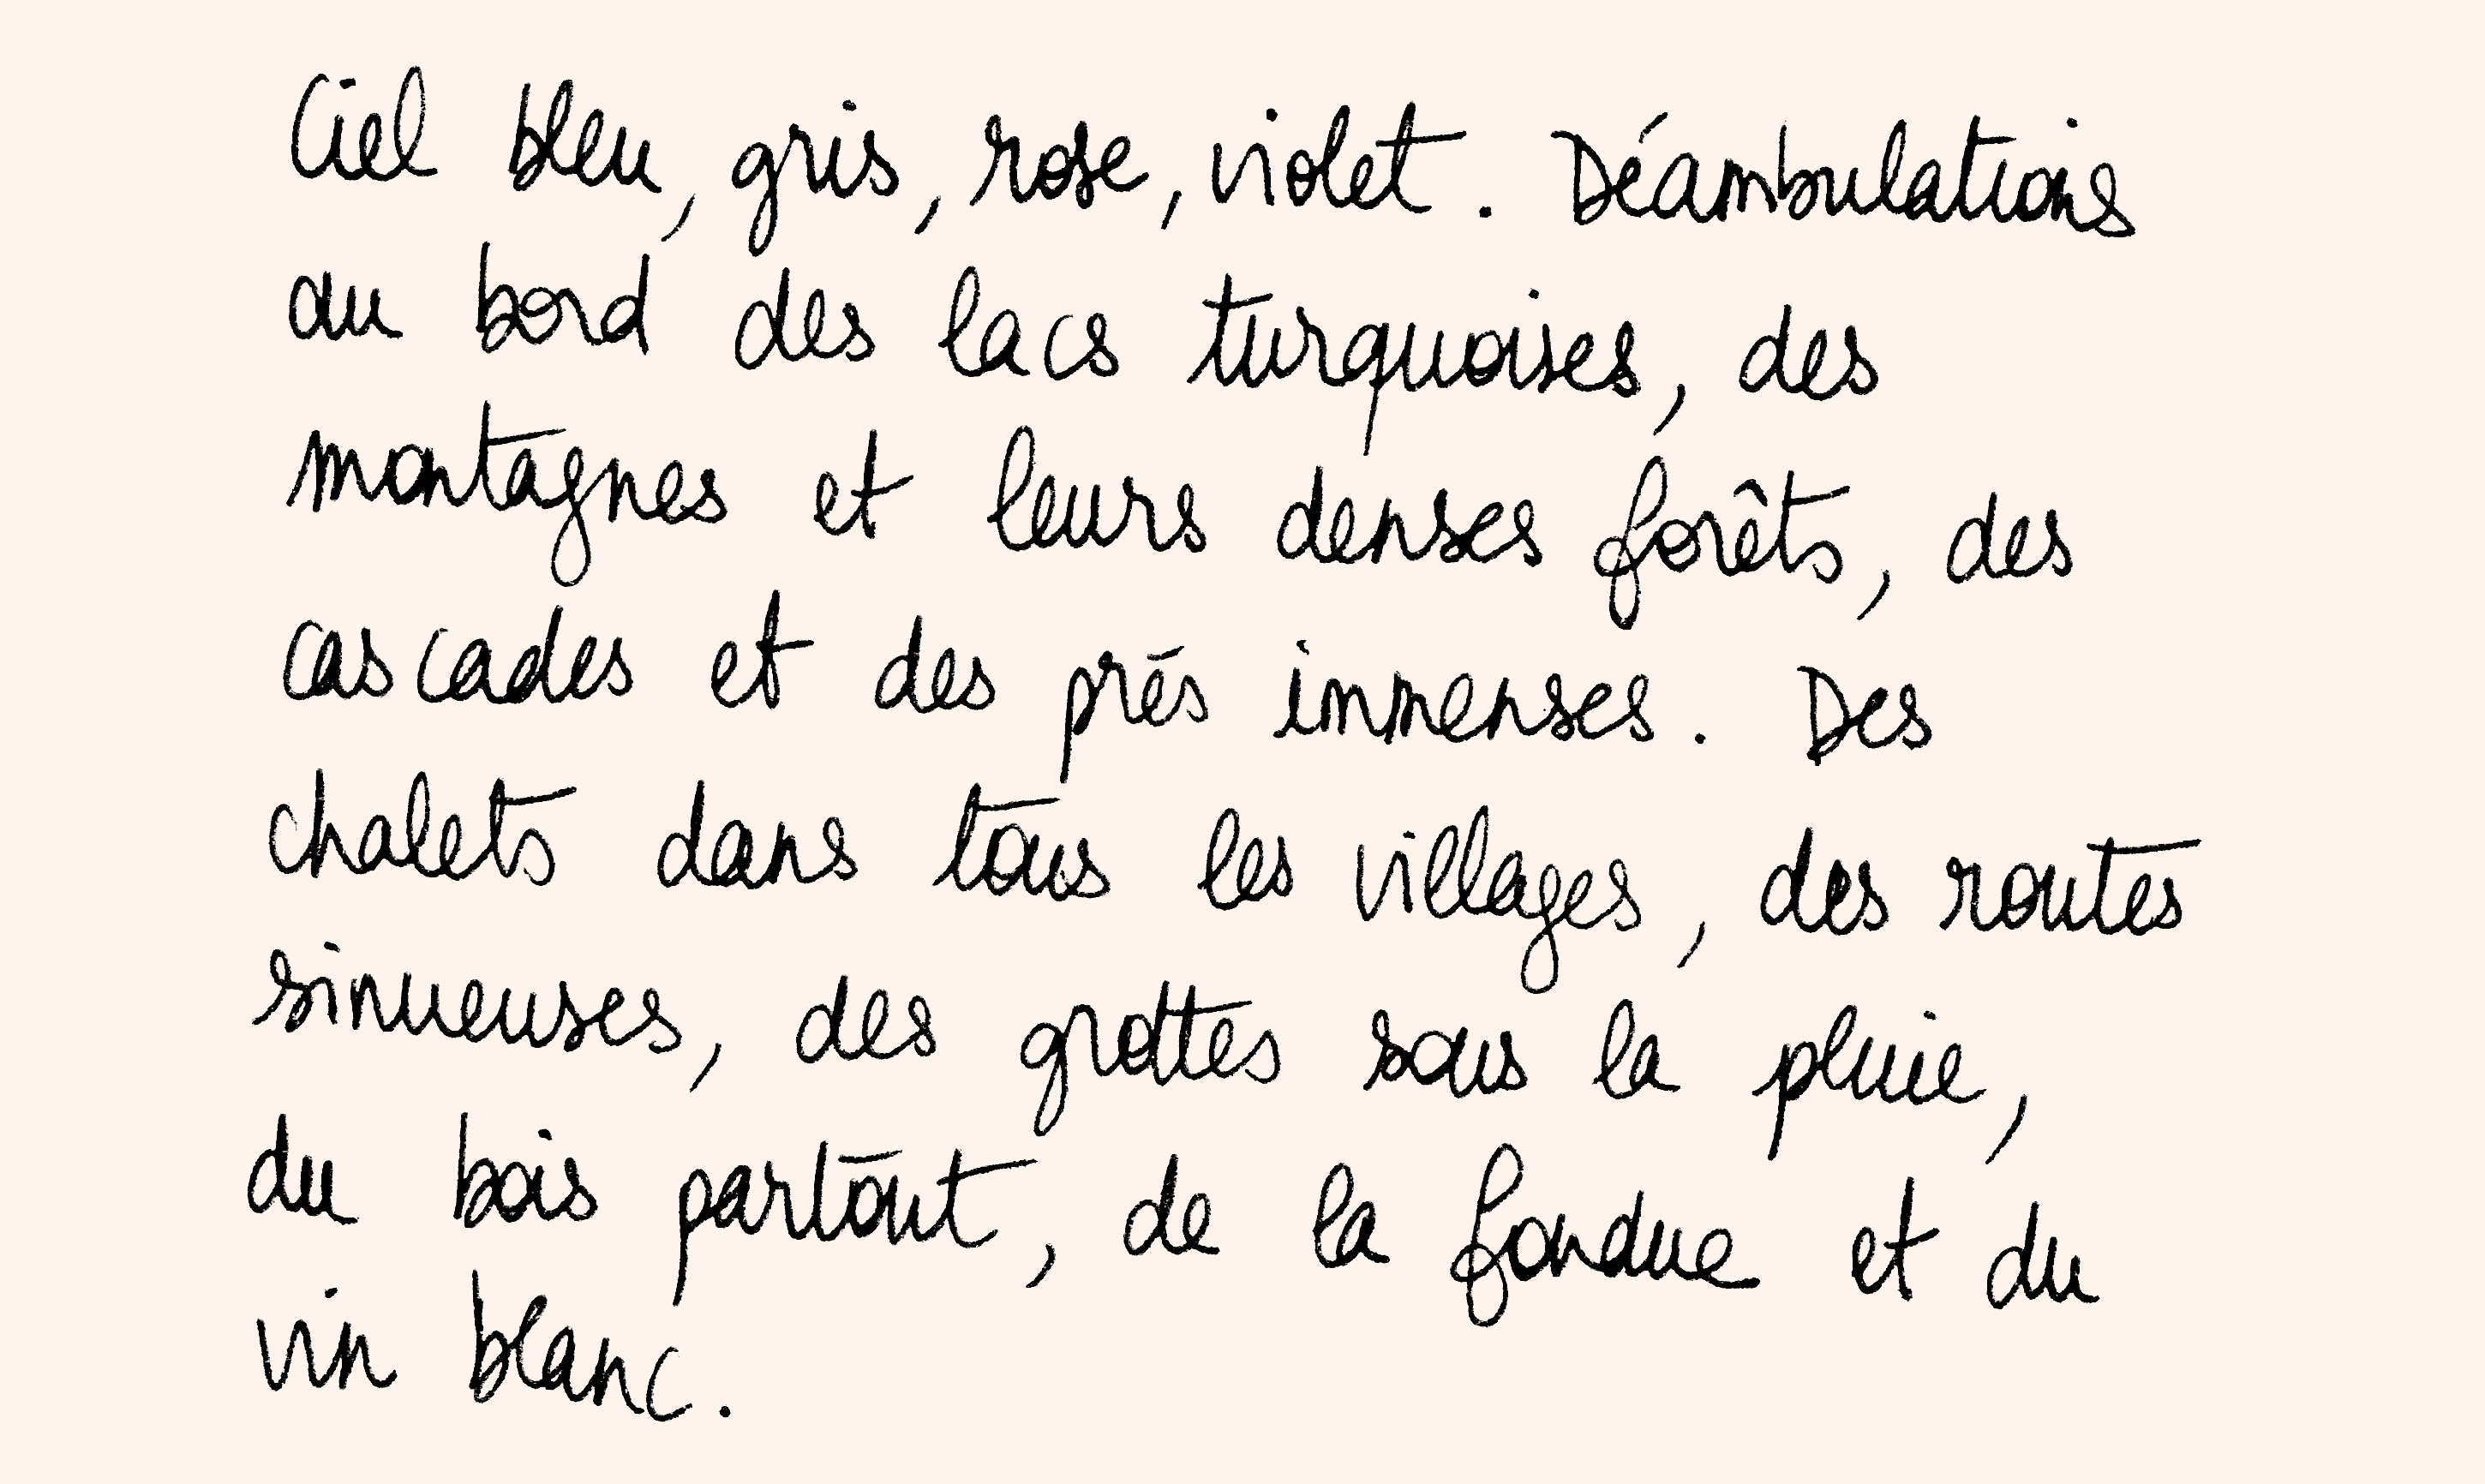 Ciel bleu, gris, rose, violet. Déambulations
au bord des lacs turquoises, des
montagnes et leurs denses forêts, des
cascades et des prés immenses. Des
chalets dans tous les villages, des routes
sinueuses, des grottes sous la pluie,
du bois partout, de la fondue et du
vin blanc.